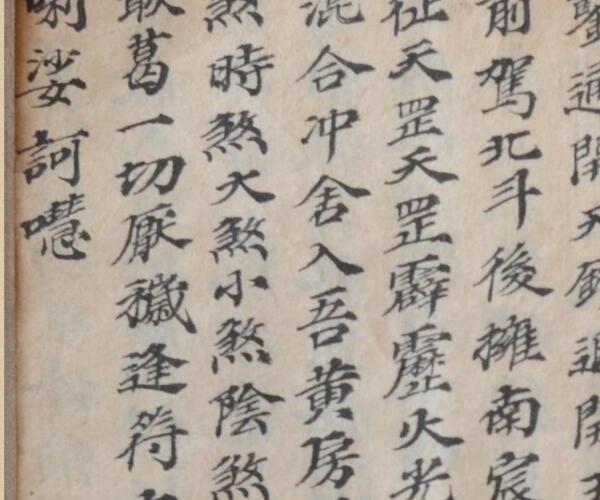 通開天
前駕北斗後擁南宸
征天罡天罡霹靂火光
混合冲舍入吾黄房
煞時煞大煞小煞陰煞
敢葛一切厭穢逢符
唎娑訶囈